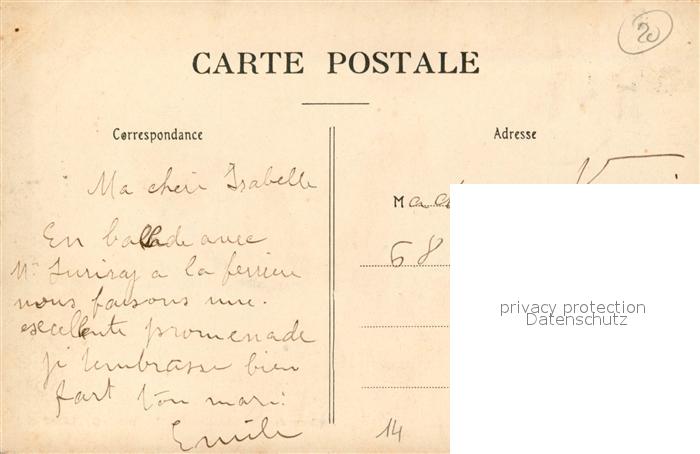 20
CARTE POSTALE
Correspondance
Adresse
Ma cheri Isabelle
En ballade avec
Mr a la ferriere
nous faisons une
excellente promenade
je tembrasse bien
fort ton mari
Emile
M
68
14
privacy protection
Datenschutz